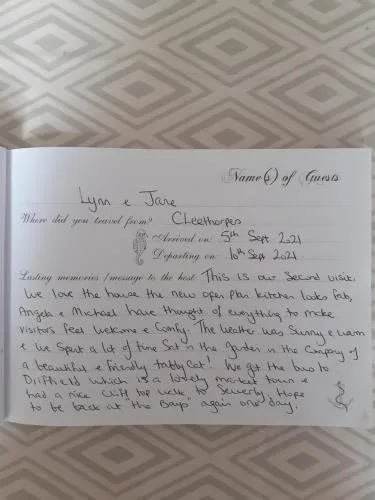 Name(s) of Guests
Lynn & Jane
Where did you travel from? Cleethorpes
Arrived on: 5th Sept 2021
Departing on: 10th Sept 2021
Lasting memories / message to the host: This is our second visit.
We love the house the new open plan kitchen looks fab,
Angela & Michael have thought of everything to make
visitors feel welcome & comfy. The weather was sunny & warm
& we spent a lot of time sat in the garden in the company of
a beautiful & friendly tabby cat! We got the bus to
Driffield which is a lovely market town &
had a nice cliff top walk to Sewerby. Hope
to be back at "The Bays" again one day.